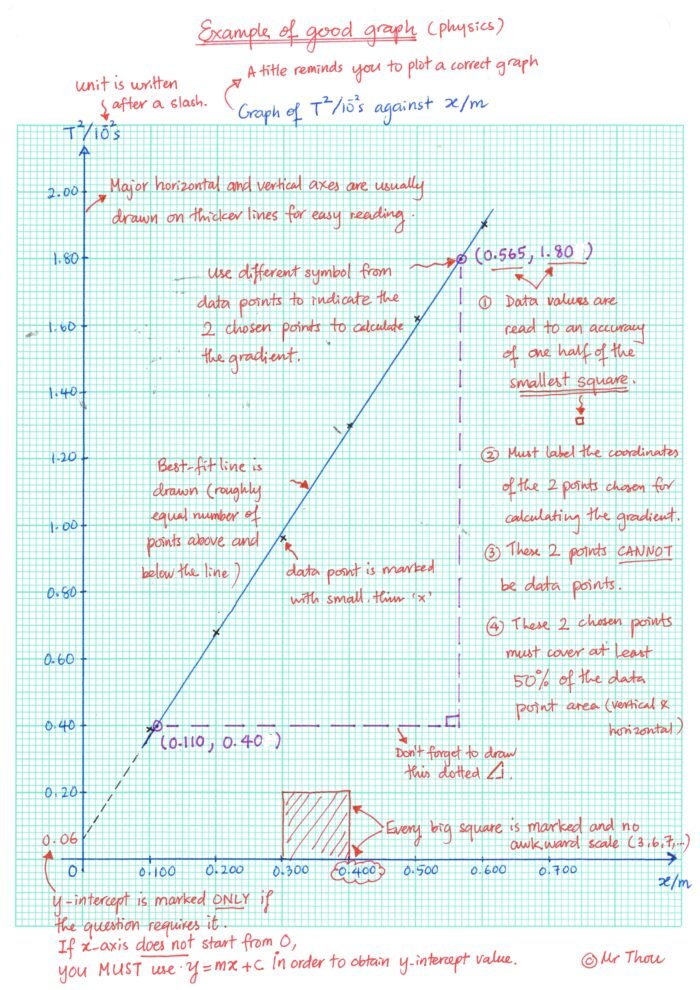 Example of good graph (physics)
A title reminds you to plot a correct graph
unit is written
after a slash.
Graph of T²/10⁻²s against x/m
T²/10⁻²s
2.00
Major horizontal and vertical axes are usually
drawn on thicker lines for easy reading.
1.80
(0.565, 1.80)
use different symbol from
data points to indicate the
2 chosen points to calculate
the gradient.
① Data values are
read to an accuracy
of one half of the
smallest square.
1.60
1.40
1.20
② Must label the coordinates
of the 2 points chosen for
calculating the gradient.
Best-fit line is
drawn (roughly
equal number of
points above and
below the line)
1.00
③ These 2 points CANNOT
be data points.
data point is marked
with small, thin 'x'
0.80
④ These 2 chosen points
must cover at least
50% of the data
point area (vertical &
horizontal)
0.60
0.40
(0.110, 0.40)
Don't forget to draw
this dotted ⊿.
0.20
Every big square is marked and no
awkward scale (3,6,7,..)
0.06
0
0.100
0.200
0.300
0.400
0.500
0.600
0.700
x/m
y-intercept is marked ONLY if
the question requires it.
If x-axis does not start from 0,
you MUST use y=mx+c in order to obtain y-intercept value.
© Mr Thou